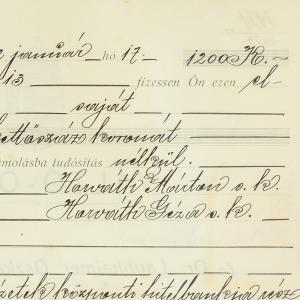 január hó 17. – 1200 K. –
13 fizessen Ön ezen el-
saját
kettőszáz koronát
számolásba tudósítás nélkül.
Horváth Márton s. k.
Horváth Géza s. k.
központi hitelbankja rész